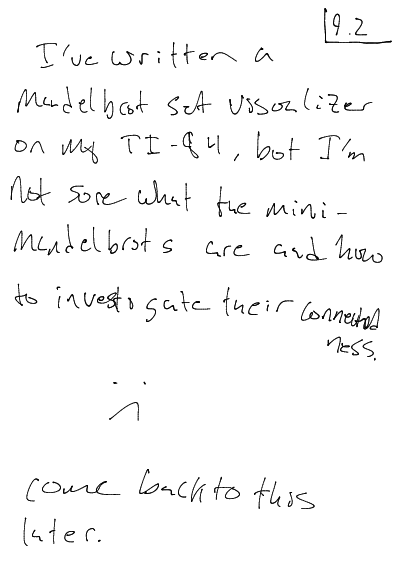 9.2
I've written a
Mandelbrot set visualizer
on my TI-84, but I'm
not sure what the mini-
Mandelbrots are and how
to investigate their connected
ness.
come back to this
later.